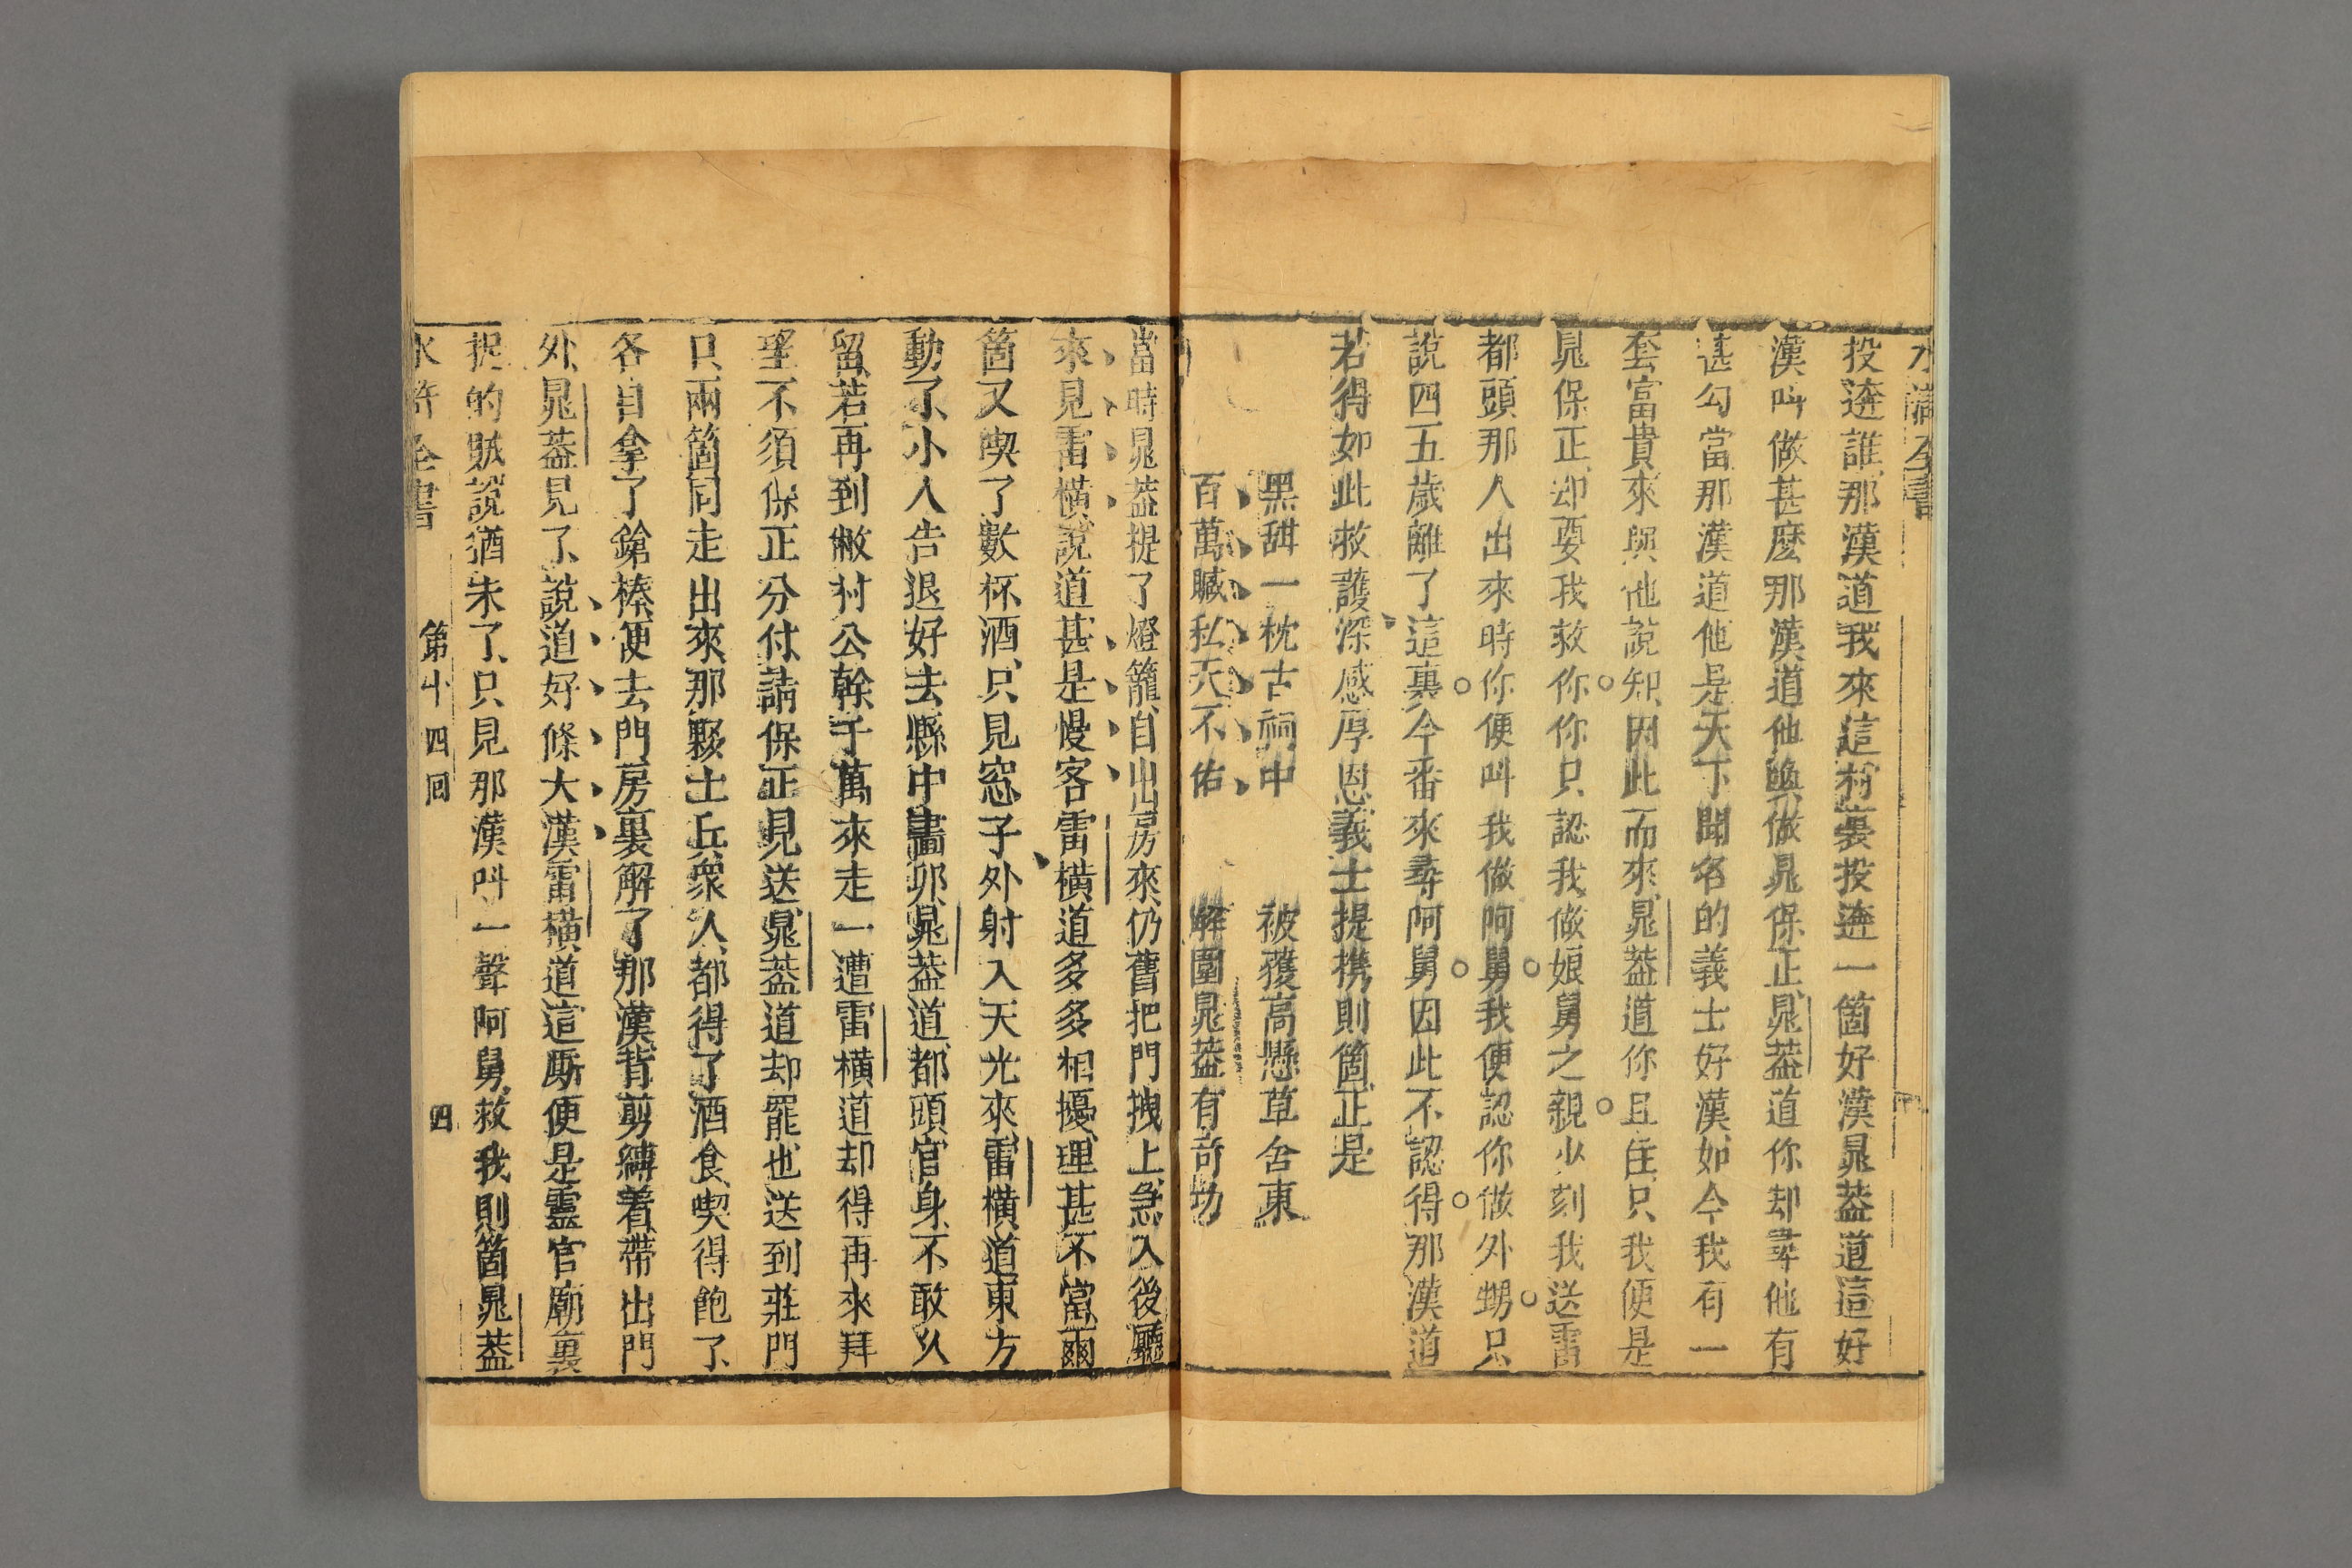 水滸全書
投逩誰那漢道我來這村裏投逩一箇好漢晁葢道這好
漢叫做甚麽那漢道他喚做晁保正晁葢道你却尋他有
甚勾當那漢道他是天下聞名的義士好漢如今我有一
套富貴來與他說知因此而來晁葢道你且住只我便是
晁保正却要我救你你只認我做娘舅之親少刻我送雷
都頭那人出來時你便叫我做阿舅我便認你做外甥只
說四五歲離了這裏今番來尋阿舅因此不認得那漢道
若得如此救護深感厚恩義士提携則箇正是
黑甜一枕古祠中　被獲高懸草舍東
百萬贜私天不佑　解圍晁葢有奇功
當時晁葢提了燈籠自出房來仍舊把門拽上急入後廳
來見雷橫說道甚是慢客雷橫道多多相擾理甚不當兩
箇又喫了數杯酒只見窓子外射入天光來雷橫道東方
動了小人告退好去縣中畫卯晁葢道都頭官身不敢久
留若再到敝村公幹千萬來走一遭雷橫道却得再來拜
望不須保正分付請保正見送晁葢道却罷也送到莊門
只兩箇同走出來那夥士兵衆人都得了酒食喫得飽了
各自拿了鎗棒便去門房裏解了那漢背剪縛着帶出門
外晁葢見了說道好條大漢雷橫道這厮便是靈官廟裏
捉的賊說猶未了只見那漢叫一聲阿舅救我則箇晁葢
水滸全書　第十四回　四